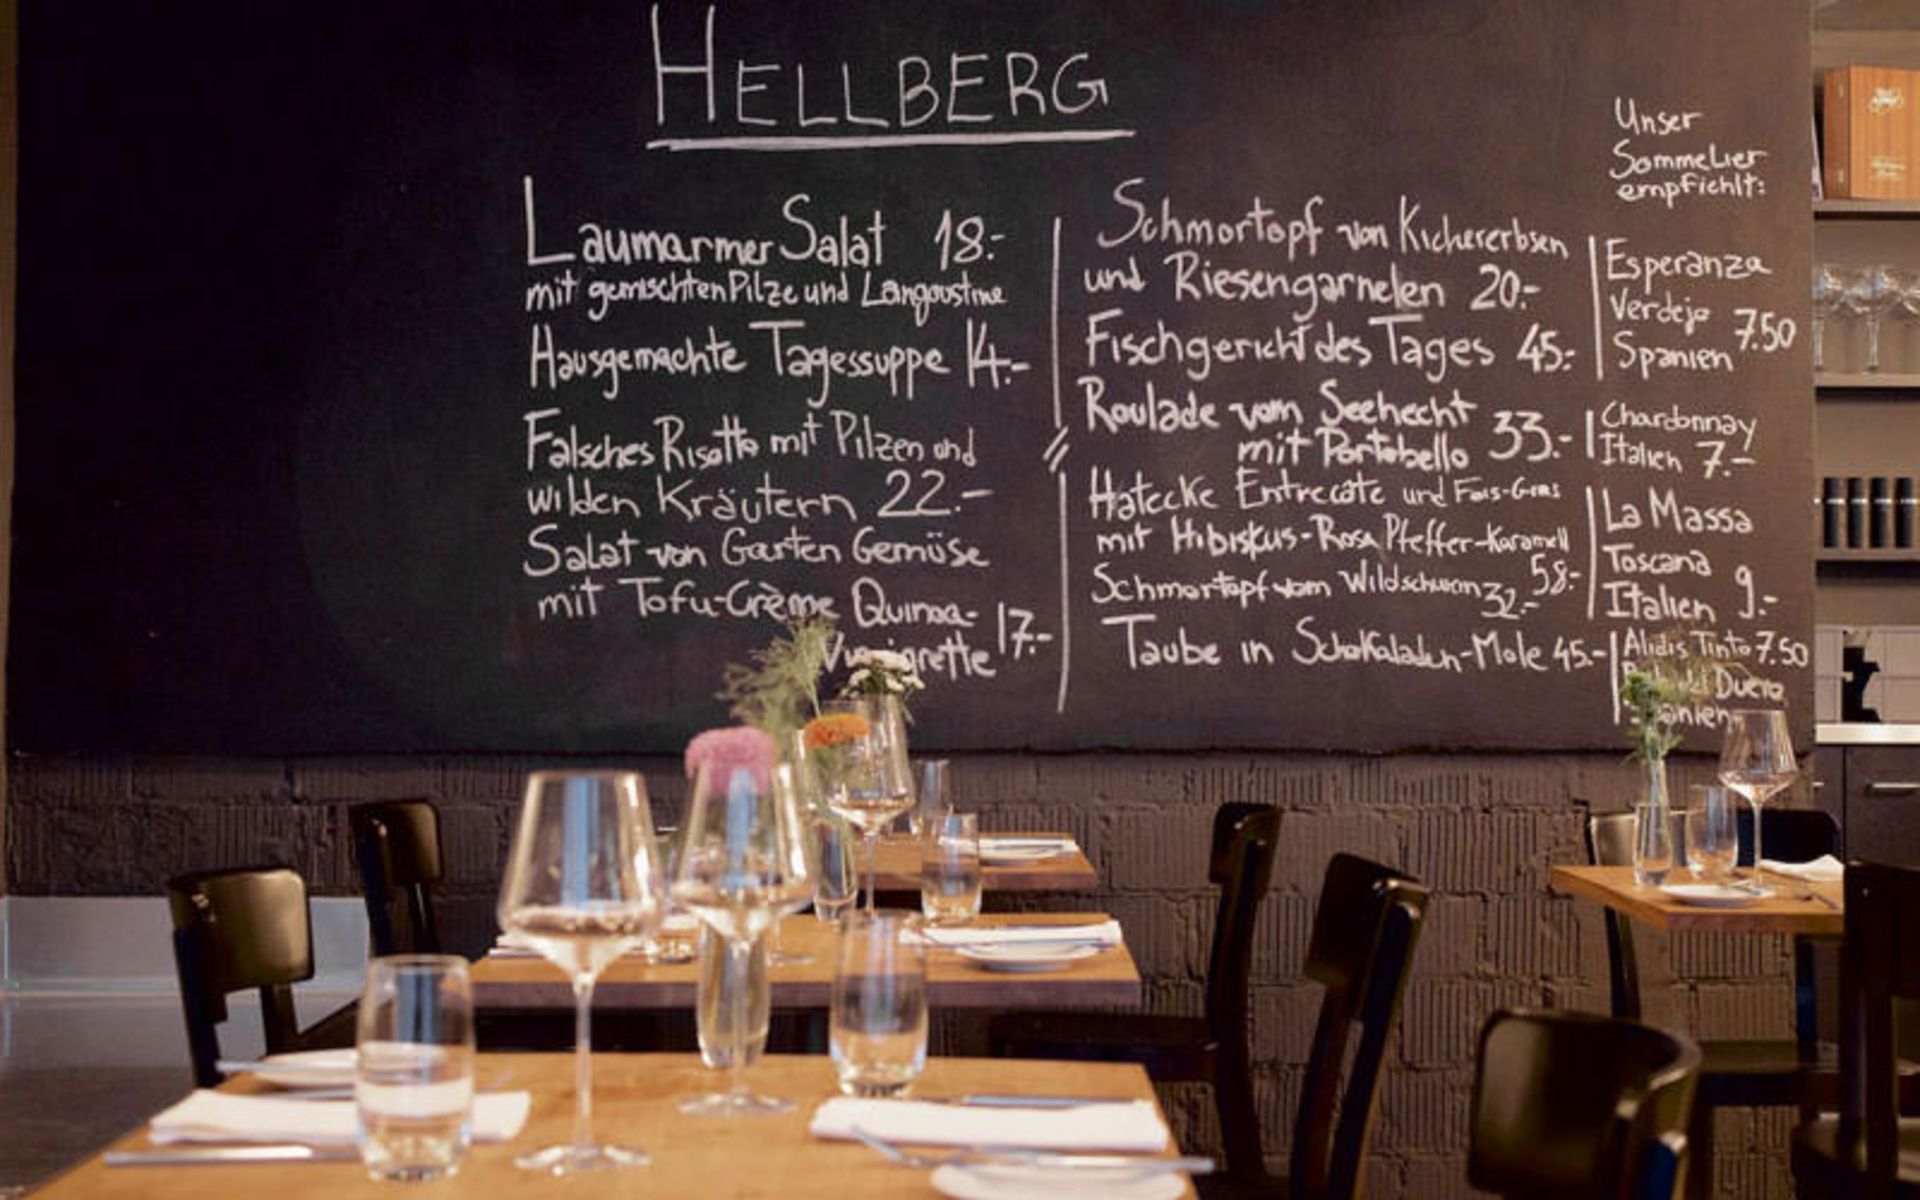 HELLBERG
Laumarmer Salat 18.-
mit gemischten Pilze und Langoustine
Hausgemachte Tagessuppe 14.-
Falsches Risotto mit Pilzen und
wilden Kräutern 22.-
Salat von Garten Gemüse
mit Tofu-Crème Quinoa-
17.-
Schmortopf von Kichererbsen
und Riesengarnelen 20.-
Fischgericht des Tages 45.-
Roulade vom Seehecht
mit Portobello 33.-
Hatecke Entrecôte und
mit Hibiskus-Rosa Pfeffer-Karamell
58.-
Schmortopf vom Wildschwein 32.-
Taube in Schokoladen-Mole 45.-
Unser
Sommelier
empfiehlt:
Esperanza
Verdejo 7.50
Spanien
Chardonnay
Italien 7.-
La Massa
Toscana
Italien 9.-
Alidis Tinto 7.50
Duero